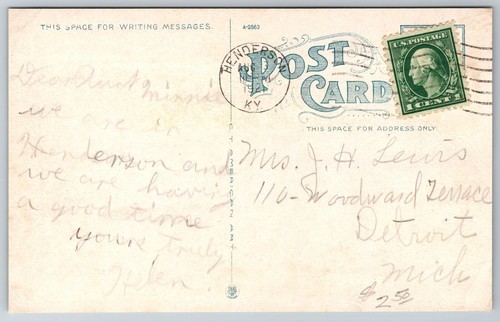 THIS SPACE FOR WRITING MESSAGES.
A-2563
POST
CARD
THIS SPACE FOR ADDRESS ONLY.
HENDERSON
AUG
KY.
U.S. POSTAGE
1 CENT 1
Minnie
we are in
Henderson and
we are having
a good time
yours truly
Helen.
Mrs. J. H. Lewis
110-Woodward Terrace
Detroit
Mich
$2.50